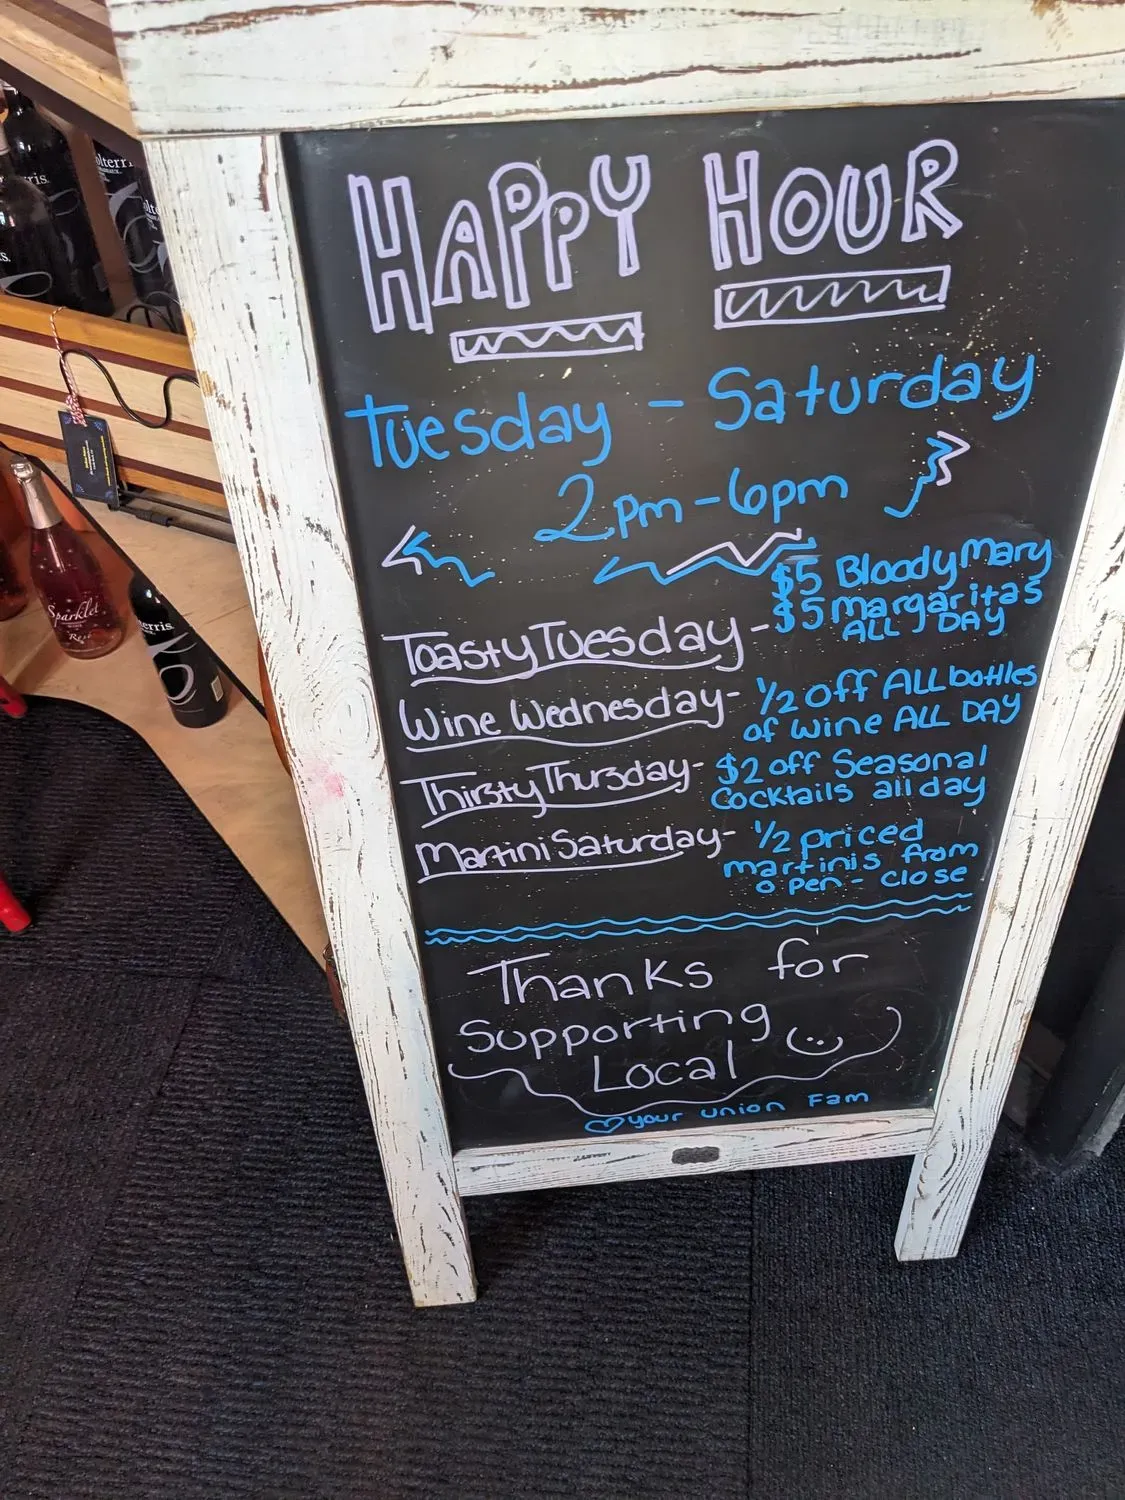 HAPPY HOUR
Tuesday - Saturday
2pm - 6pm
Toasty Tuesday - $5 Bloody Mary
$5 margaritas
ALL DAY
Wine Wednesday - 1/2 off ALL bottles
of wine ALL DAY
Thirsty Thursday - $2 off Seasonal
Cocktails all day
Martini Saturday - 1/2 priced
martinis from
open - close
Thanks for
Supporting
Local
your union Fam
olterri
erris.
Sparklet
Rosé
erris.